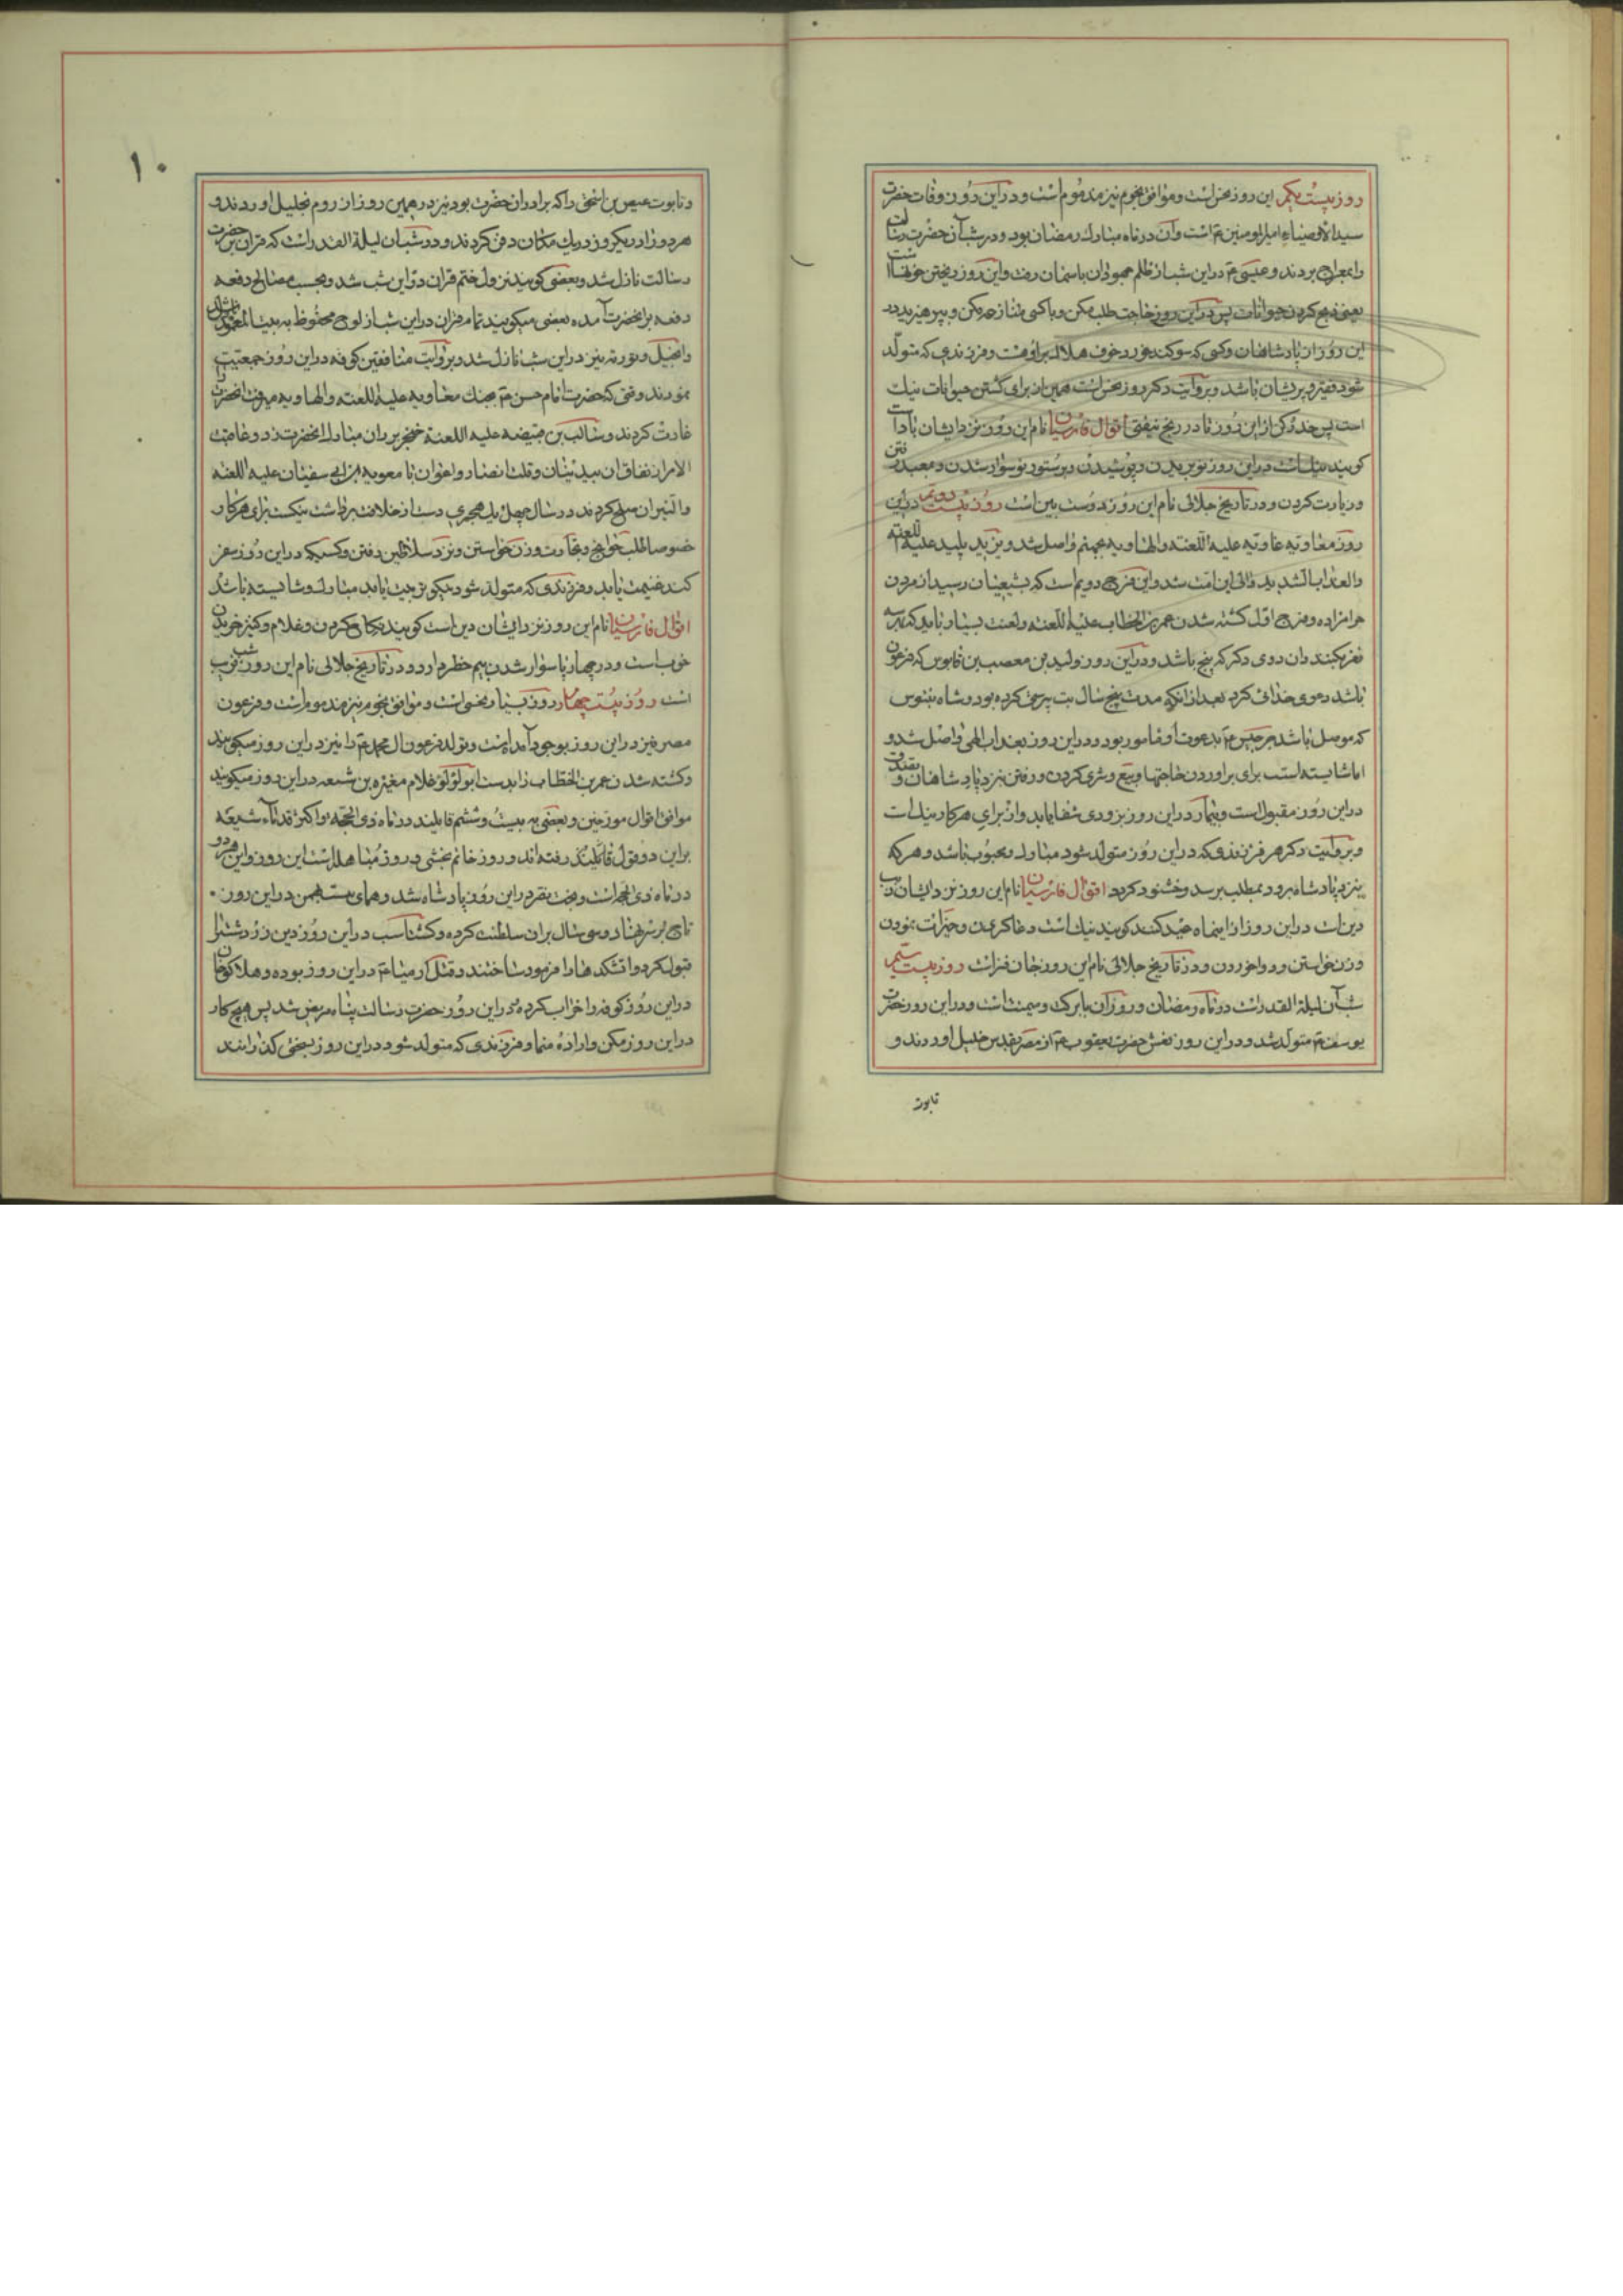 روز بیست یکم این روز نحس است و موافق نجوم نیز مذموم است و در این روز وفات حضرت
سید الاوصیاء امیرالمومنین ع است و آن در ماه مبارک رمضان بود و در شب آن حضرت رسالت
را بمعراج بردند و عیسی ع در این شب از ظلم جهودان باسمان رفت و این روز ریختن خونها است
یعنی ذبح کردن حیوانات پس در این روز حاجت طلب مکن و با کسی منازعه مکن و بپرهیزید در
این روز از پادشاهان و کسی که سوکند خورد خوف هلاک برای اوست و فرزندی که متولد
شود فقیر و پریشان باشد و بروایت دکر روز نحس است همین از برای کشتن حیوانات نیک
است پس حذر کن از این روز تا در رنج نیفتی اقوال فارسیان نام این روز نزد ایشان
کویند نیک است در این روز نو بریدن و پوشیدن و بر ستور نو سوار شدن و بمعبد رفتن
و زیارت کردن و در تاریخ جلالی نام این روز دوست بین است روز بیست دویم در این
روز معاویه علیه اللعنه والهاویه بجهنم واصل شد و یزید پلید علیه اللعنه
والعذاب الشدید والی این امت شد و این فرح دویم است که بشیعیان رسید از مردن
حرامزاده و فرح اول کشته شدن عمر بن الخطاب علیه اللعنه ولعنت بسیار باید که بر سه
نفر بکنند و ان دوی دکر که پنج باشد و در این روز ولید بن مصعب بن قابوس که فرعون
باشد دعوی خدائی کرد بعد از انکه مدت پنج سال بت پرستی کرده بود و شاه
که موصل باشد جرجیس ع بدعوت او مامور بود در این روز بعذاب الهی واصل شد و
اما شایسته است برای براوردن حاجتها و بیع و شری کردن و رفتن نزد پادشاهان و تصدق
در این روز مقبول است و بیمار در این روز بزودی شفا یابد و از برای هر کار نیک است
و بروایت دکر هر فرزندی که در این روز متولد شود مبارک و محبوب باشد و هر که
بنزد پادشاه برود بمطلب برسد و خشنود کردد اقوال فارسیان نام این روز نزد ایشان
در این روز از اینماه عید کنند کویند نیک است دعا کردن و خیرات نمودن
و زن خواستن و دوا خوردن و در تاریخ جلالی نام این روز جان فزا است روز بیست سیم
شب آن لیلة القدر است در ماه رمضان و روز آن با برکت و میمنت است و در این روز حضرت
یوسف ع متولد شد و در این روز نعش حضرت یعقوب ع از مصر بقدس خلیل اوردند و
تابوت
۱۰
و تابوت عیص بن اسحق را که برادر ان حضرت بود نیز در همین روز از روم بخلیل اوردند و
هر دو را در یکروز در یک مکان دفن کردند و در شب ان لیلة القدر است که قران بر حضرت
رسالت نازل شد و بعضی کویند نزول ختم قران در این شب شد و بحسب مصالح دفعه
دفعه بر انحضرت آمده بعضی میکویند تمام قران در این شب از لوح محفوظ به بیت المعمور نازل شد
و انجیل و توریه نیز در این شب نازل شد و بروایت منافقین کوفه در این روز جمعیت
نمودند وقتی که حضرت امام حسن ع بجنک معاویه علیه اللعنه والهاویه میرفت انحضرت را
غارت کردند و سالب بن قبیضه علیه اللعنة خنجر بر ران مبارک انحضرت زد و عاقبت
الامر از نفاق ان بیدینان و قلت انصار و اعوان با معویه بن ابی سفیان علیه اللعنه
والنیران صلح کردند در سال چهل یک هجری دست از خلافت برداشت نیک است برای هر کار
خصوصا طلب حوایج و تجارت و زن خواستن و نزد سلاطین رفتن و کسیکه در این روز سفر
کند غنیمت یابد و فرزندی که متولد شود نیکو تربیت یابد مبارک و شایسته باشد
اقوال فارسیان نام این روز نزد ایشان دین است کویند نکاح کردن و غلام و کنیز خریدن
خوب است و در چهار پا سوار شدن بیم خطر دارد و در تاریخ جلالی نام این روز
است روز بیست چهارم روز بسیار نحسی است و موافق نجوم نیز مذموم است و فرعون
مصر نیز در این روز بوجود آمده است و تولد فرعون ال محمد ع را نیز در این روز میکویند
و کشته شدن عمر بن الخطاب را بدست ابولؤلؤ غلام مغیره بن شعبه در این روز میکویند
موافق اقوال مورخین و بعضی به بیست و ششم قایلند در ماه ذی الحجه و اکثر قدماء شیعه
براین دو قول قائلیند رفته اند و روز خاتم بخشی و روز مباهله است این روز و این هر دو
در ماه ذی الحجه است و بخت نصر در این روز پادشاه شد و همای بنت بهمن در این روز
تاج بر سر نهاد و سی سال بران سلطنت کرده و کشتاسب در این روز دین زردشت را
قبول کرد و اتشکدها را فرمود ساختند و قتل ارمیا ع در این روز بوده و هلاکو خان
در این روز کوفه را خراب کرده و در این روز حضرت رسالت پناه مریض شد پس هیچ کار
در این روز مکن و اراده منما و فرزندی که متولد شود در این روز بسختی کذراند